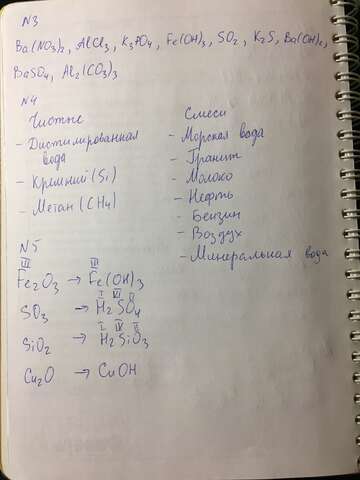 N3
Ba(NO3)2, AlCl3, K3PO4, Fe(OH)3, SO2, K2S, Ba(OH)2,
BaSO4, Al2(CO3)3
N4
Чистые
- Дистилированная
вода
- Кремний (Si)
- Метан (CH4)
Смеси
- Морская вода
- Гранит
- Молоко
- Нефть
- Бензин
- Воздух
- Минеральная вода
N5
III III
Fe2O3 → Fe(OH)3
I VI II
SO3 → H2SO4
I IV II
SiO2 → H2SiO3
Cu2O → CuOH